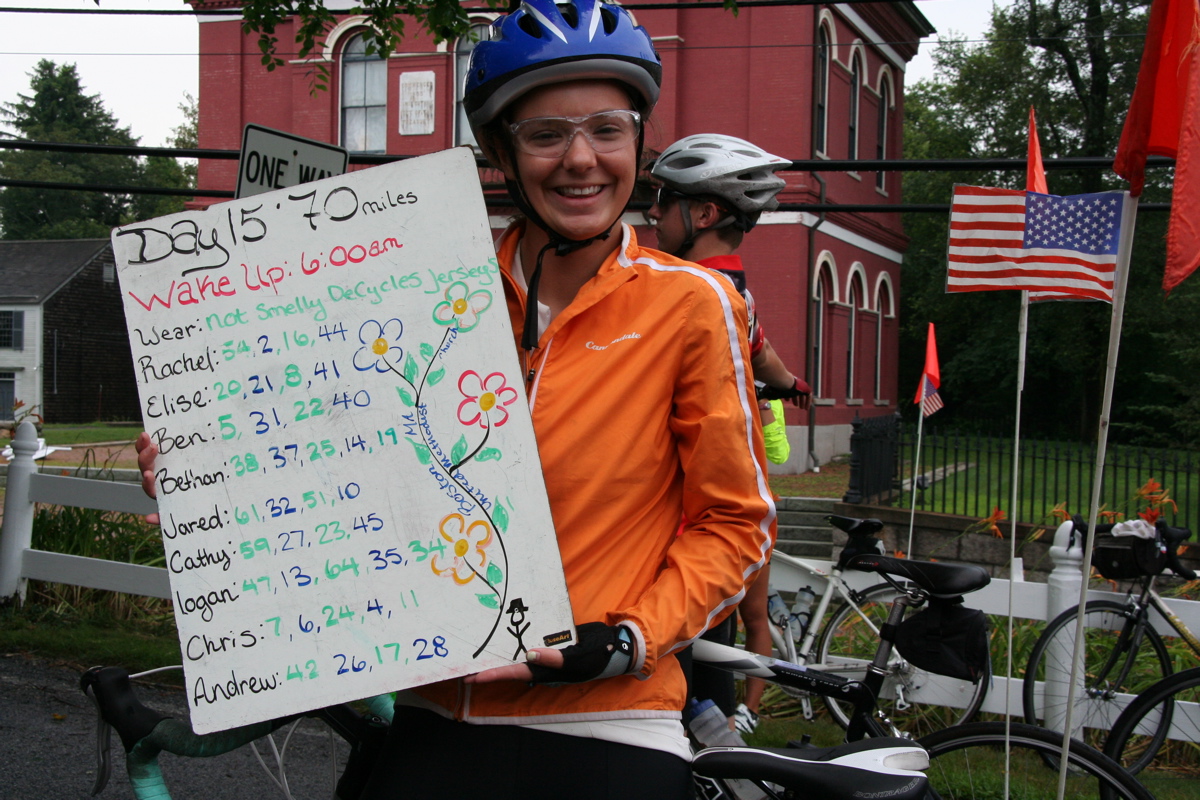 ONE WAY
Day 15: 70 miles
Wake Up: 6:00am
Wear: Not Smelly DeCycles Jerseys
Rachel: 54, 2, 16, 44
Elise: 20, 21, 8, 41
Ben: 5, 31, 22, 40
Bethan: 38, 37, 25, 14, 19
Jared: 61, 32, 51, 10
Cathy: 59, 27, 23, 45
logan: 47, 13, 64, 35, 34
Chris: 7, 6, 24, 4, 11
Andrew: 42 26, 17, 28
MA
Boston
United Methodist
church
Cannondale